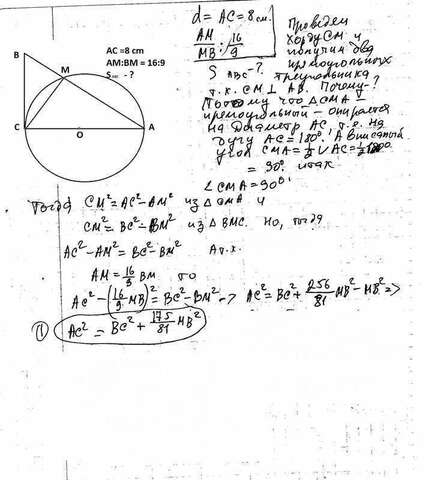 d = AC = 8 см.
AM/MB : 16/9
S ABC - ?
AC =8 cm
AM:BM = 16:9
S - ?
B
M
C
O
A
Проведем
хорду CM и
получим два
прямоугольных
треугольника
т.к. CM ⊥ AB. Почему-?
Потому что △CMA –
прямоугольный – опирается
на диаметр AC, т.е. на
дугу AC = 180°. А вписанный
угол CMA = 1/2 ∪ AC = 1/2 180°
= 90° итак
∠ CMA = 90°
Тогда CM² = AC² - AM² из △ CMA и
CM² = BC² - BM² из △ BMC. Но, тогда
AC² - AM² = BC² - BM² А т.к.
AM = 16/9 BM то
AC² - (16/9 MB)² = BC² - BM² -> AC² = BC² + 256/81 MB² - MB² =>
① AC² = BC² + 175/81 MB²